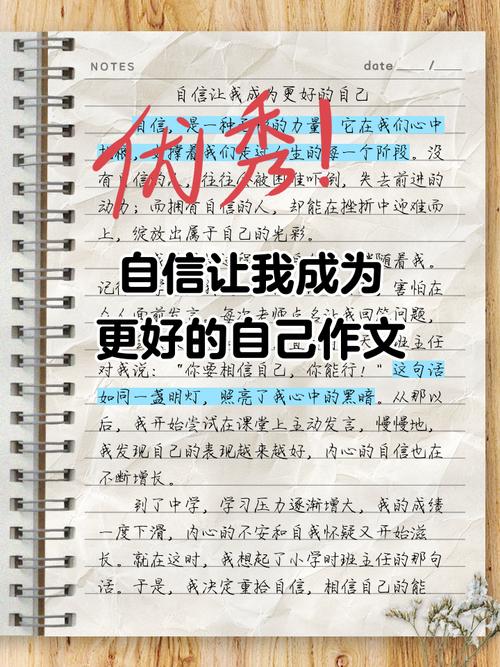 NOTES
date ___ /___
自信让我成为更好的自己
优秀!
自信,是一种 的力量,它在我们心中
撑着我们走过人生的每一个阶段。没
有自信的人,往往 被困难吓倒,失去前进的
动力;而拥有自信的人,却能在挫折中迎难而
上,绽放出属于自己的光彩。
随着我。
自信让我成为
记得 害怕在
人面前发言,每次老师点名让我回答问题,
更好的自己作文
班主任
对我说:“你要相信自己,你能行!”这句话
如同一盏明灯,照亮了我心中的黑暗。从那以
后,我开始尝试在课堂上主动发言,慢慢地,
我发现自己的表现越来越好,内心的自信也在
不断增长。
到了中学,学习压力逐渐增大,我的成绩
一度下滑,内心的不安和自我怀疑又开始滋
长。就在这时,我想起了小学时班主任的那句
话。于是,我决定重拾自信,相信自己的能